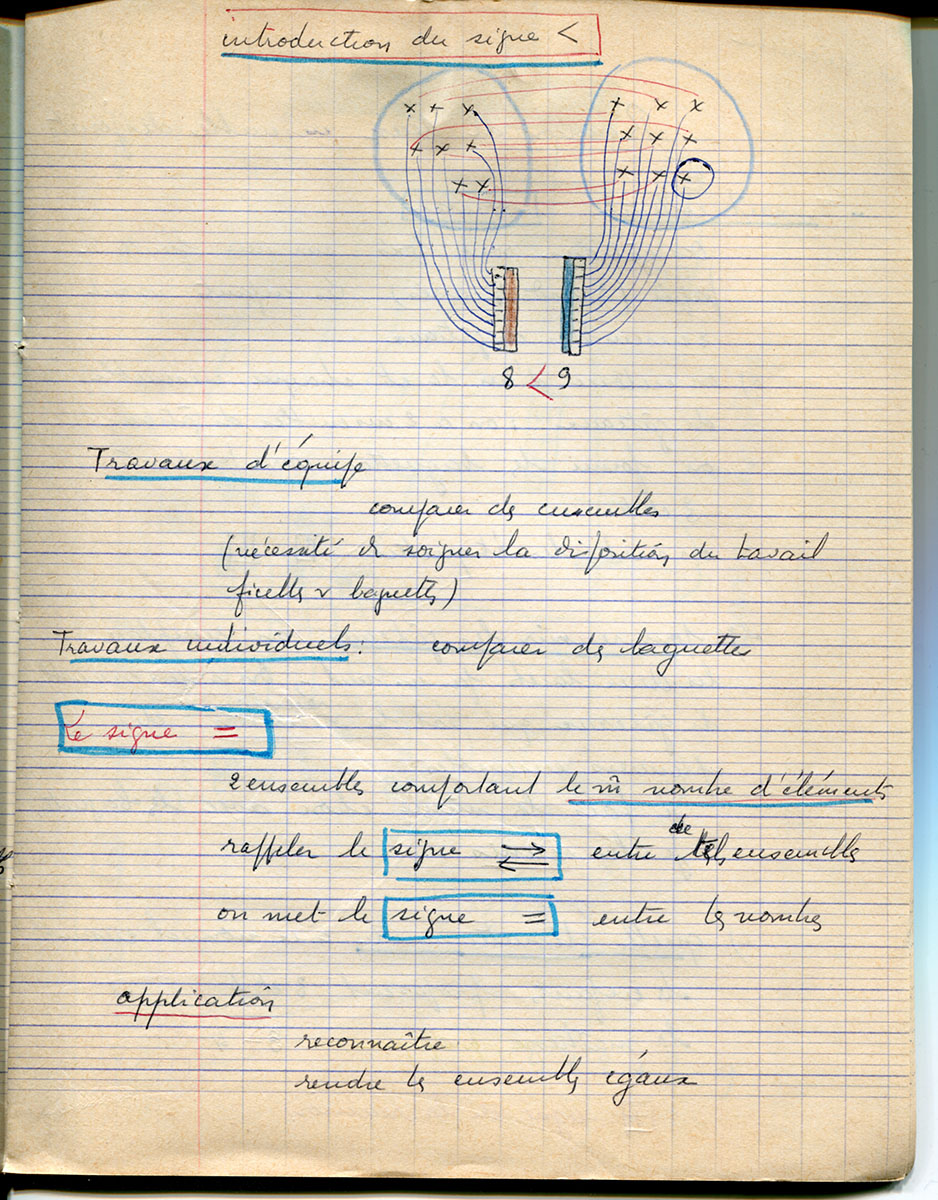 introduction du signe <
8 < 9
Travaux d'équipe
comparer des ensembles
(nécessité de soigner la disposition du travail
ficelles & baguettes)
Travaux individuels : comparer des baguettes
Le signe =
2 ensembles comportant le m̂ nombre d'éléments
rappeler le signe ⇄ entre de tels ensembles
on met le signe = entre les nombres
application
reconnaître
rendre les ensembles égaux